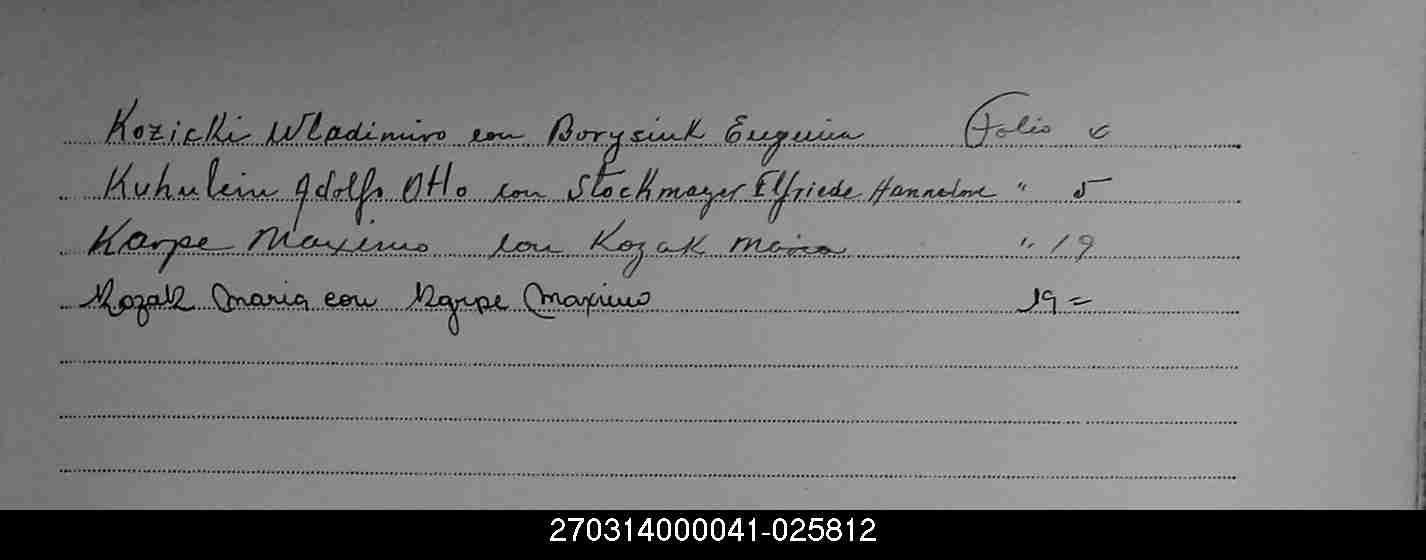 Kozicki Wladimiro con Borysiuk Eugenia Folio
Kuhnlein Adolfo Otto con Stockmayer Elfriede Hannelore " 5
Karpe Maximo con Kozak Maria " 19
Kozak Maria con Karpe Maximo 19 =
270314000041-025812